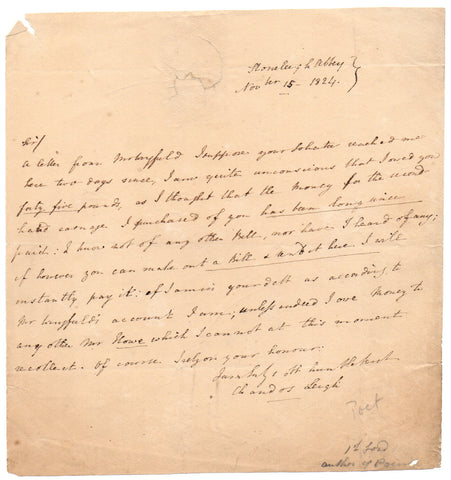 Stoneleigh Abbey
Novber 15 - 1824.
Sir/
A letter from Mr Wingfield I suppose your Solicitor reached me
here two days since, I am quite unconscious that I owed you
forty five pounds, as I thought that the money for the second
hand carriage I purchased of you has been long since
paid. I know not of any other Bill, nor have I heard of any;
if however you can make out a Bill & send it here I will
instantly pay it. if I am in your debt as according to
Mr Wingfield's account I am; unless indeed I owe money to
any other Mr Howe which I cannot at this moment
recollect. Of course I rely on your honour.
I am Sir your obt hum Servt
Chandos Leigh
Poet
1st Lord
author of Poems